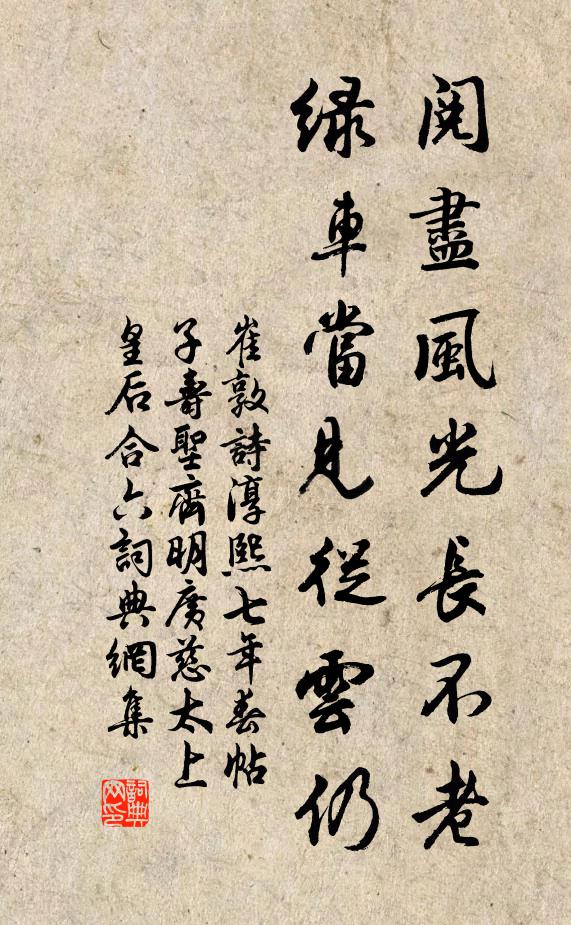 閱盡風光長不老
綠車當見從雲仍
崔敦詩淳熙七年春帖
子壽聖齊明廣慈太上
皇后合六詞典網集
詞典網印